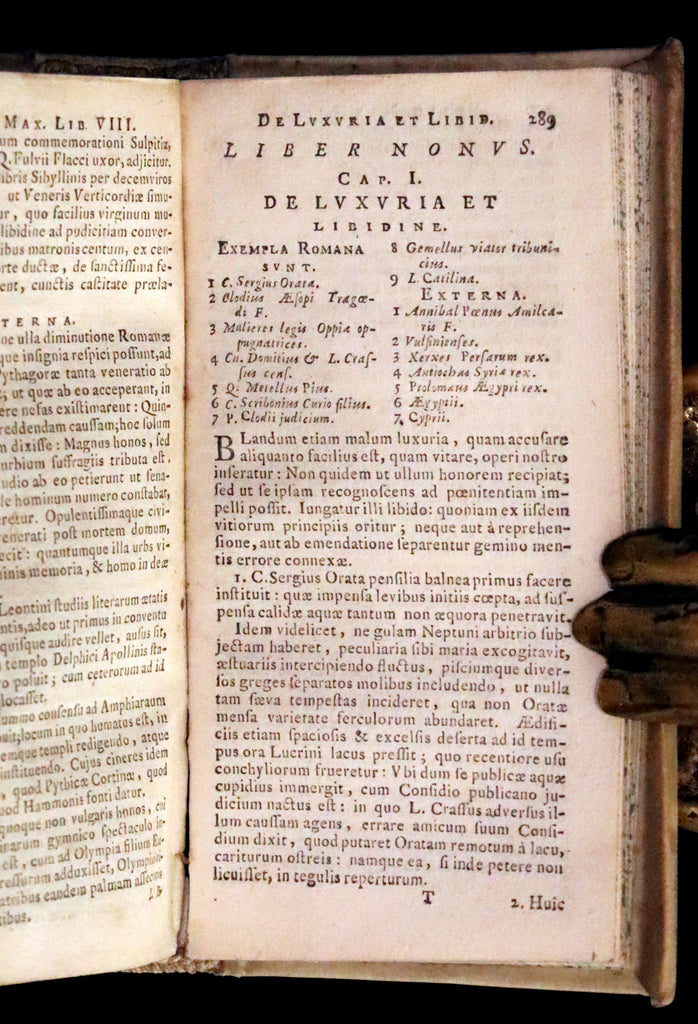 MAX. LIB. VIII.
um commemorationi Sulpitia,
Q. Fulvii Flacci uxor, adjicitur.
ibris Sibyllinis per decemviros
ut Veneris Verticordiæ simu-
ur, quo facilius virginum mu-
libidine ad pudicitiam conver-
ibus matronis centum, ex cen-
rte ductæ, de sanctissima fe-
ent, cunctis castitate præla-
TERNA.
ne ulla diminutione Romanæ
que insignia respici possunt, ad
Pythagoræ tanta veneratio ab
t, ut quæ ab eo acceperant, in
ere nefas existimarent: Quin-
reddendam caussam; hoc solum
m dixisse: Magnus honos, sed
urbium suffragiis tributa est.
udio ab eo petierunt ut sena-
le hominum numero constabat,
eretur. Opulentissimaque civi-
enerati post mortem domum,
ecit: quantumque illa urbs vi-
inis memoria, & homo in deæ
Leontini studiis literarum ætatis
ntis, adeo ut primus in conventu
quisque audire vellet, ausus sit,
templo Delphici Apollinis sta-
o poluit; cum ceterorum ad id
locasset.
ummo consensu ad Amphiaraum
uit; locum in quo humatus est, in
emque templi redigendo, atque
instituendo. Cujus cineres idem
, quod Pythicæ Cortinæ, quod
uod Hammonis fonti datur.
quoque non vulgaris honos, cui
inarum gymnico spectaculo in-
est, cum ad Olympia filium Eu-
ressurum adduxisset, Olympion-
atribus eandem palmam assecutis
tibus.
DE LVXVRIA ET LIBID. 289
LIBER NONVS.
CAP. I.
DE LVXVRIA ET
LIBIDINE.
EXEMPLA ROMANA
SVNT.
1 C. Sergius Orata.
2 Clodius Æsopi Tragœ-
di F.
3 Mulieres legis Oppiæ op-
pugnatrices.
4 Cn. Domitius & L. Cras-
sus cens.
5 Q. Metellus Pius.
6 C. Scribonius Curio filius.
7 P. Clodii judicium.
8 Gemellus viator tribuni-
cius.
9 L. Catilina.
EXTERNA.
1 Annibal Pœnus Amilca-
ris F.
2 Vulsinienses.
3 Xerxes Persarum rex.
4 Antiochus Syriæ rex.
5 Ptolomæus Ægypti rex.
6 Ægyptii.
7 Cyprii.
BLandum etiam malum luxuria, quam accusare
aliquanto facilius est, quam vitare, operi nostro
inseratur: Non quidem ut ullum honorem recipiat;
sed ut se ipsam recognoscens ad pœnitentiam im-
pelli possit. Iungatur illi libido: quoniam ex iisdem
vitiorum principiis oritur; neque aut à reprehen-
sione, aut ab emendatione separentur gemino men-
tis errore connexæ.
1. C. Sergius Orata pensilia balnea primus facere
instituit: quæ impensa levibus initiis cœpta, ad sus-
pensa calidæ aquæ tantum non æquora penetravit.
Idem videlicet, ne gulam Neptuni arbitrio sub-
jectam haberet, peculiaria sibi maria excogitavit,
æstuariis intercipiendo fluctus, pisciumque diver-
sos greges separatos molibus includendo, ut nulla
tam sæva tempestas incideret, qua non Oratæ
mensa varietate ferculorum abundaret. Ædifi-
ciis etiam spaciosis & excelsis deserta ad id tem-
pus ora Lucrini lacus pressit; quo recentiore usu
conchyliorum frueretur: Vbi dum se publicæ aquæ
cupidius immergit, cum Considio publicano ju-
dicium nactus est: in quo L. Crassus adversus il-
lum caussam agens, errare amicum suum Consi-
dium dixit, quod putaret Oratam remotum à lacu,
cariturum ostreis: namque ea, si inde petere non
licuisset, in tegulis reperturum.
T 2. Huic